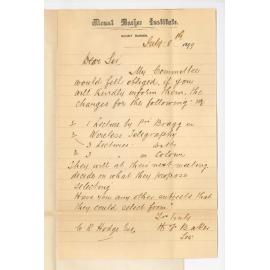 Mount Barker Institute.
MOUNT BARKER,
July 8th 1899
Dear Sir
My Committee
would fell obliged, if you
will kindly inform them, the
changes for the following: viz
1 Lecture by Bragg on
Wireless Telegraphy
3 Lectures
3 " on Colour
They will at their next meeting
decide on what they propose
selecting.
Have you any other subjects that
they could select from?
Yrs truly
C. R. Hodge Esq
Baker
Sec